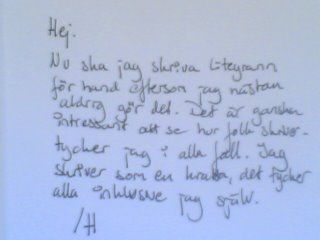 Hej.
Nu ska jag skriva litegrann
för hand eftersom jag nästan
aldrig gör det. Det är ganska
intressant att se hur folk skriver
tycker jag i alla fall. Jag
skriver som en kratta, det tycker
alla inklusive jag själv.
/H